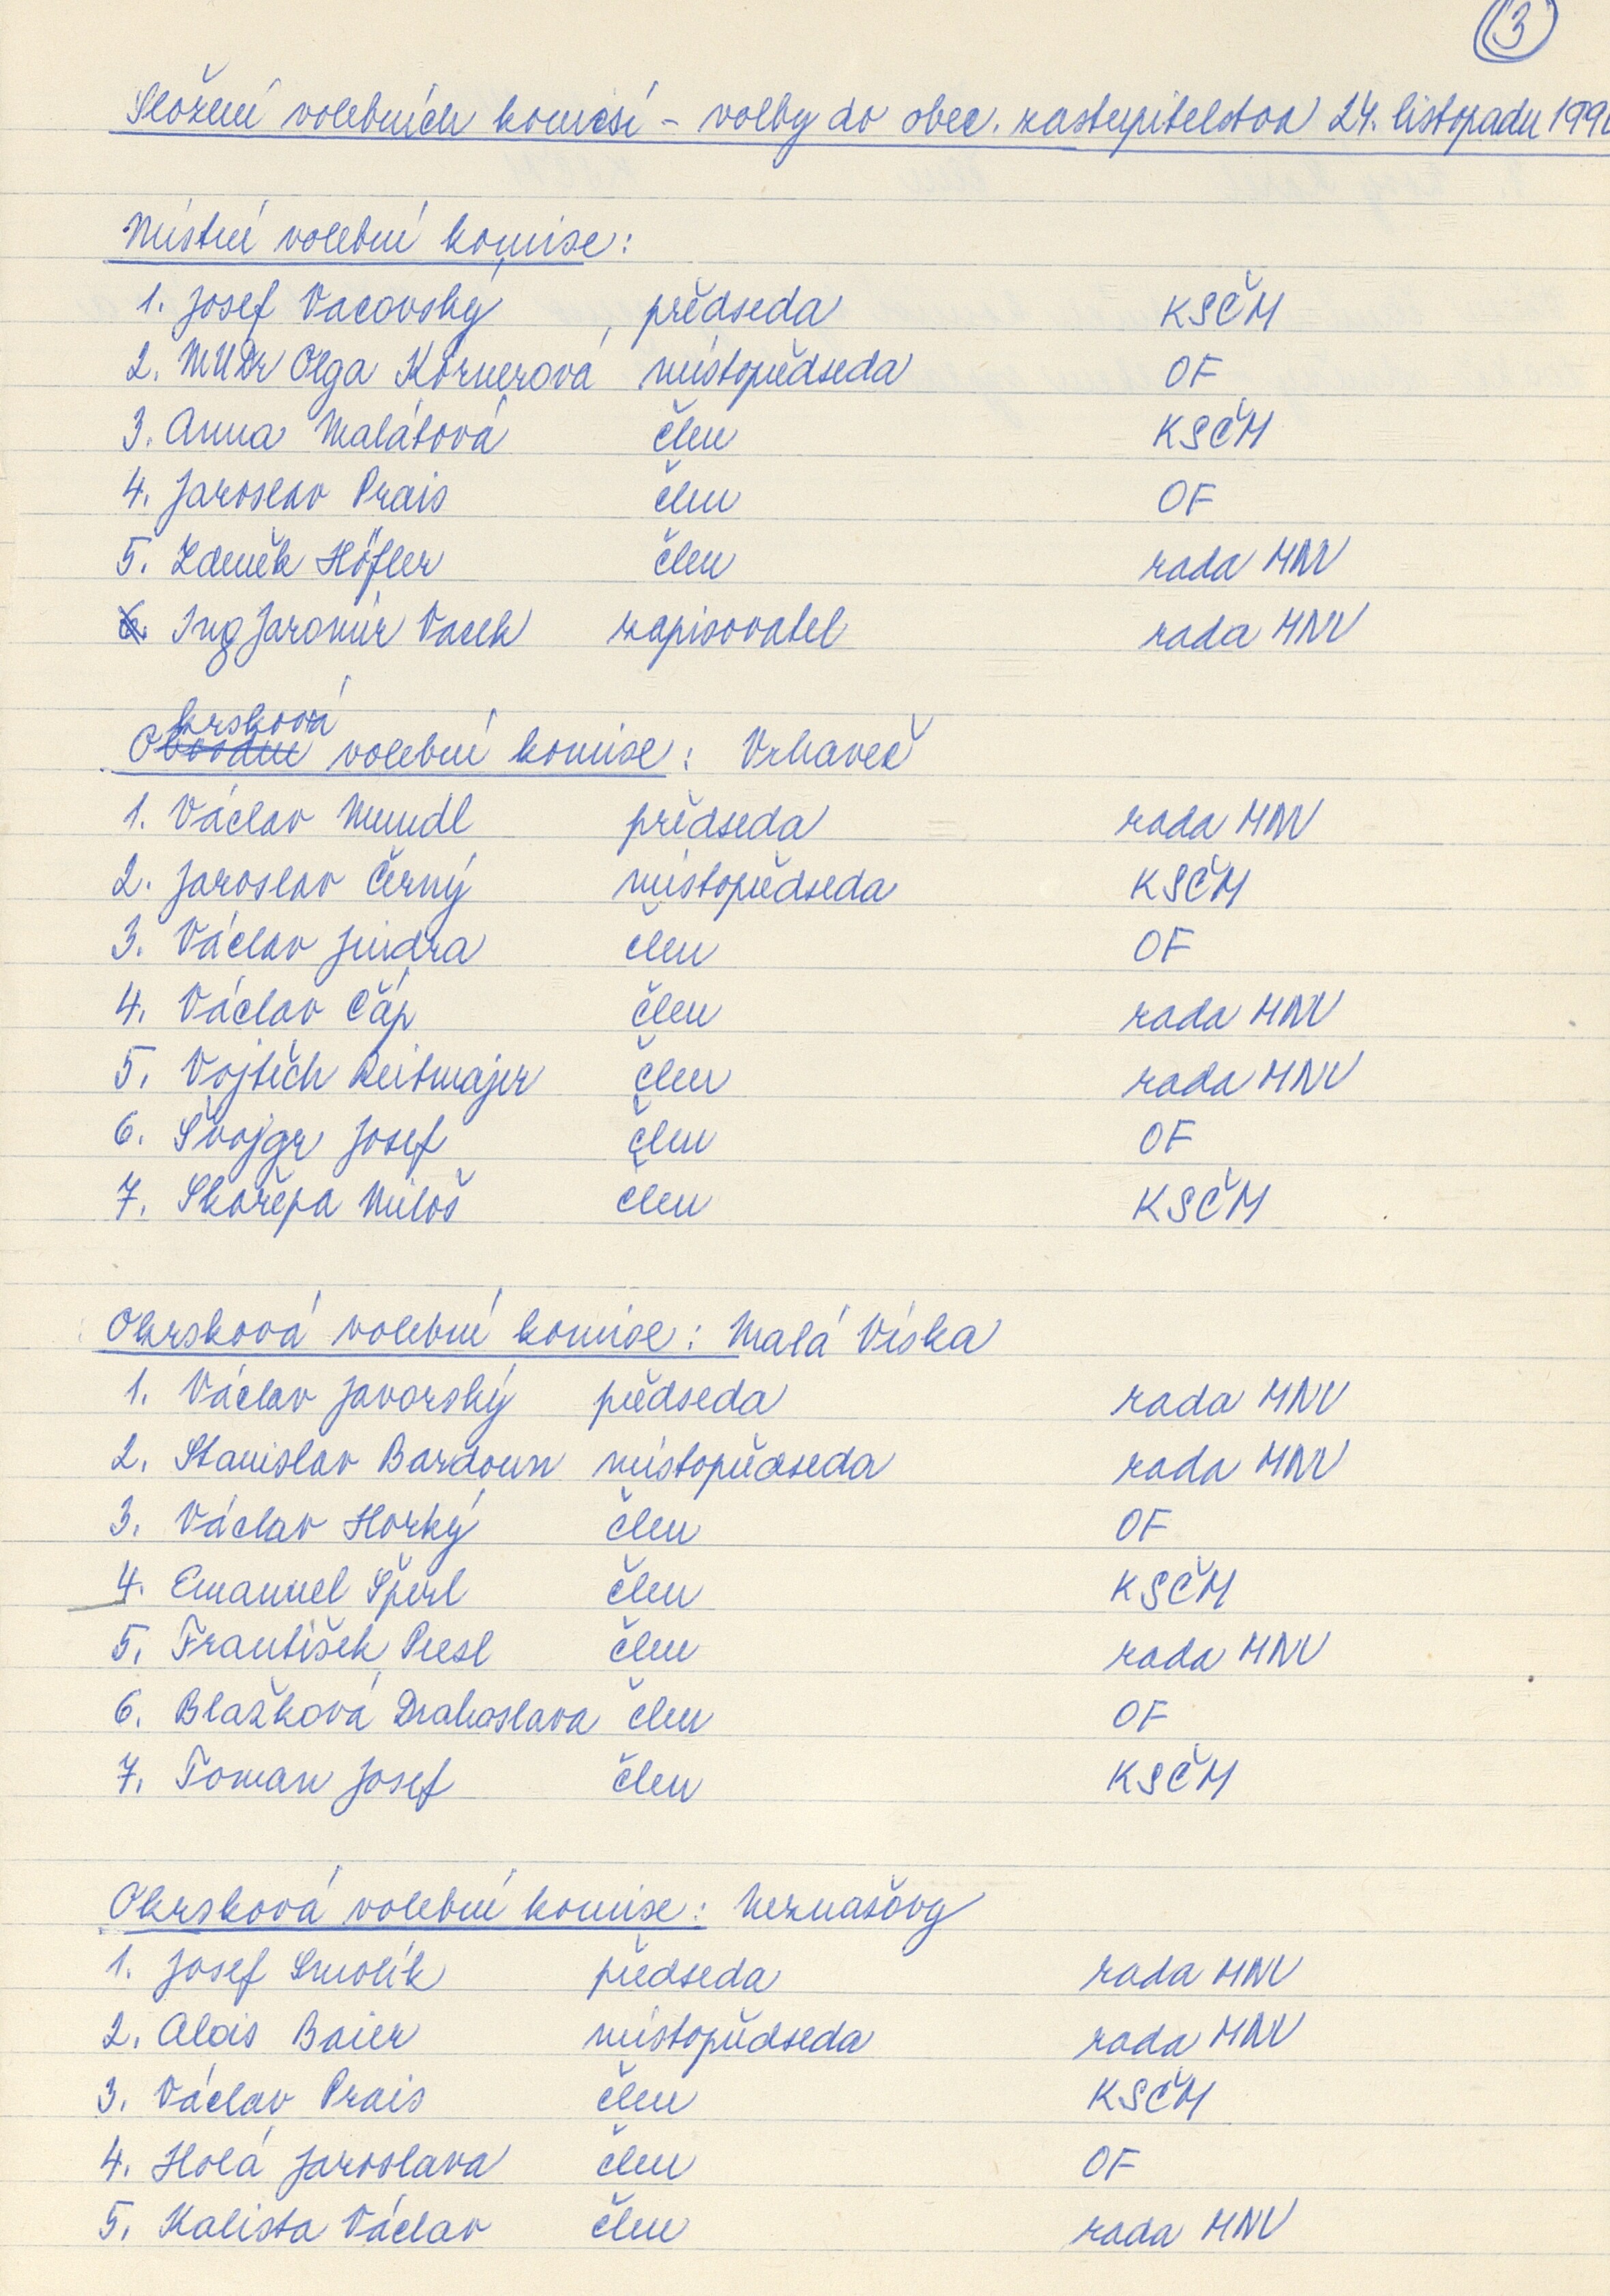 3
Složení volebních komisí - volby do obec. zastupitelstva 24. listopadu 1990
Místní volební komise:
1. Josef Vacovský, předseda KSČM
2. MUDr Olga Körnerová místopředseda OF
3. Anna Malátová člen KSČM
4. Jaroslav Prais člen OF
5. Zdeněk Höfler člen rada MNV
6. Ing Jaromír Vacek zapisovatel rada MNV
krsková
Obvodní volební komise: Vrhaveč
1. Václav Mundl předseda rada MNV
2. Jaroslav Černý místopředseda KSČM
3. Václav Jindra člen OF
4. Václav Čáp člen rada MNV
5. Vojtěch Reitmajer člen rada MNV
6. Švojgr Josef člen OF
7. Skořepa Miloš člen KSČM
Okrsková volební komise: Malá Víska
1. Václav Javorský předseda rada MNV
2. Stanislav Bardoun místopředseda rada MNV
3. Václav Horký člen OF
4. Emanuel Šperl člen KSČM
5. František Presl člen rada MNV
6. Blažková Drahoslava člen OF
7. Toman Josef člen KSČM
Okrsková volební komise: Neznašovy
1. Josef Smolík předseda rada MNV
2. Alois Baier místopředseda rada MNV
3. Václav Prais člen KSČM
4. Holá Jaroslava člen OF
5. Kalista Václav člen rada MNV